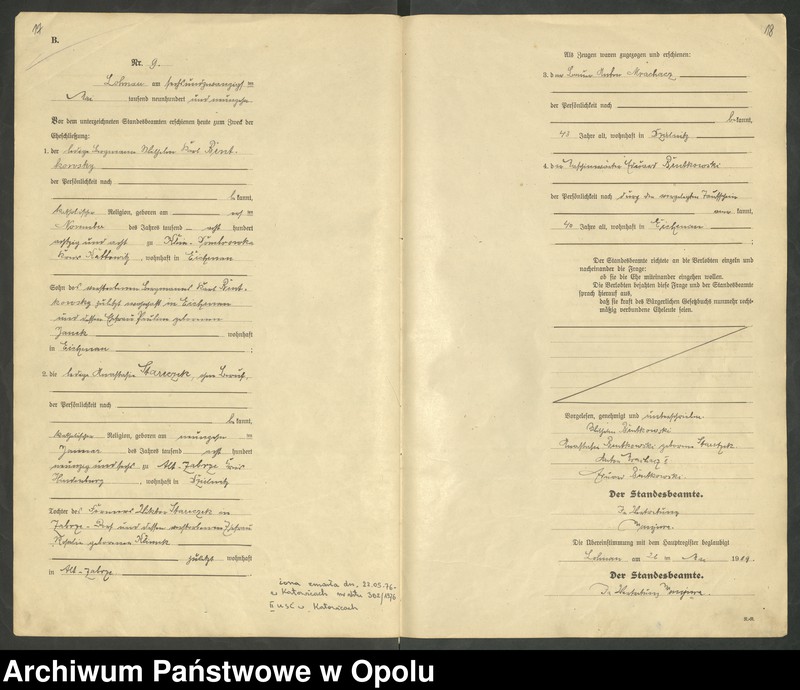 B.
Nr. 9.
Lohnau am sechsundzwanzigsten
Mai tausend neunhundert und neunzehn
Vor dem unterzeichneten Standesbeamten erschienen heute zum Zweck der
Eheschließung:
1. der ledige Bergmann Wilhelm Karl Bint-
kowsky
der Persönlichkeit nach
be kannt,
katholischer Religion, geboren am
November des Jahres tausend acht hundert
achtzig und acht zu Klein-Dombrowka
Kreis Kattowitz, wohnhaft in Eichenau
Sohn des verstorbenen Bergmanns Karl Bint-
kowsky zuletzt wohnhaft in Eichenau
und dessen Ehefrau Pauline geborenen
Janek wohnhaft
in Eichenau ;
2. die ledige Anastasia Starczek, ohne Beruf,
der Persönlichkeit nach
be kannt,
katholischer Religion, geboren am neunzehn ten
Januar des Jahres tausend acht hundert
neunzig und sechs zu Alt-Zabrze Kreis
Hindenburg, wohnhaft in
Tochter des Viktor Starczek in
Zabrze-Dorf und dessen verstorbenen Ehefrau
Rosalie geborenen
zuletzt wohnhaft
in Alt-Zabrze .
żona zmarła dn. 22.05.76.
w Katowicach nr aktu 302/1976
II USC w Katowicach
118
Als Zeugen waren zugezogen und erschienen:
3. der Anton
der Persönlichkeit nach
be kannt,
43 Jahre alt, wohnhaft in
4. der Eduard Bintkowski
der Persönlichkeit nach durch den vorgelegten
aner kannt,
40 Jahre alt, wohnhaft in Eichenau
;
Der Standesbeamte richtete an die Verlobten einzeln und
nacheinander die Frage:
ob sie die Ehe miteinander eingehen wollen.
Die Verlobten bejahten diese Frage und der Standesbeamte
sprach hierauf aus,
daß sie kraft des Bürgerlichen Gesetzbuchs nunmehr recht-
mäßig verbundene Eheleute seien.
Vorgelesen, genehmigt und unterschrieben.
Wilhelm Bintkowski
Anastasia Bintkowski geborene Starczek
Anton
Eduard Bintkowski.
Der Standesbeamte.
In Vertretung
Die Übereinstimmung mit dem Hauptregister beglaubigt
Lohnau am 26 ten Mai 1919.
Der Standesbeamte.
In Vertretung
Archiwum Państwowe w Opolu